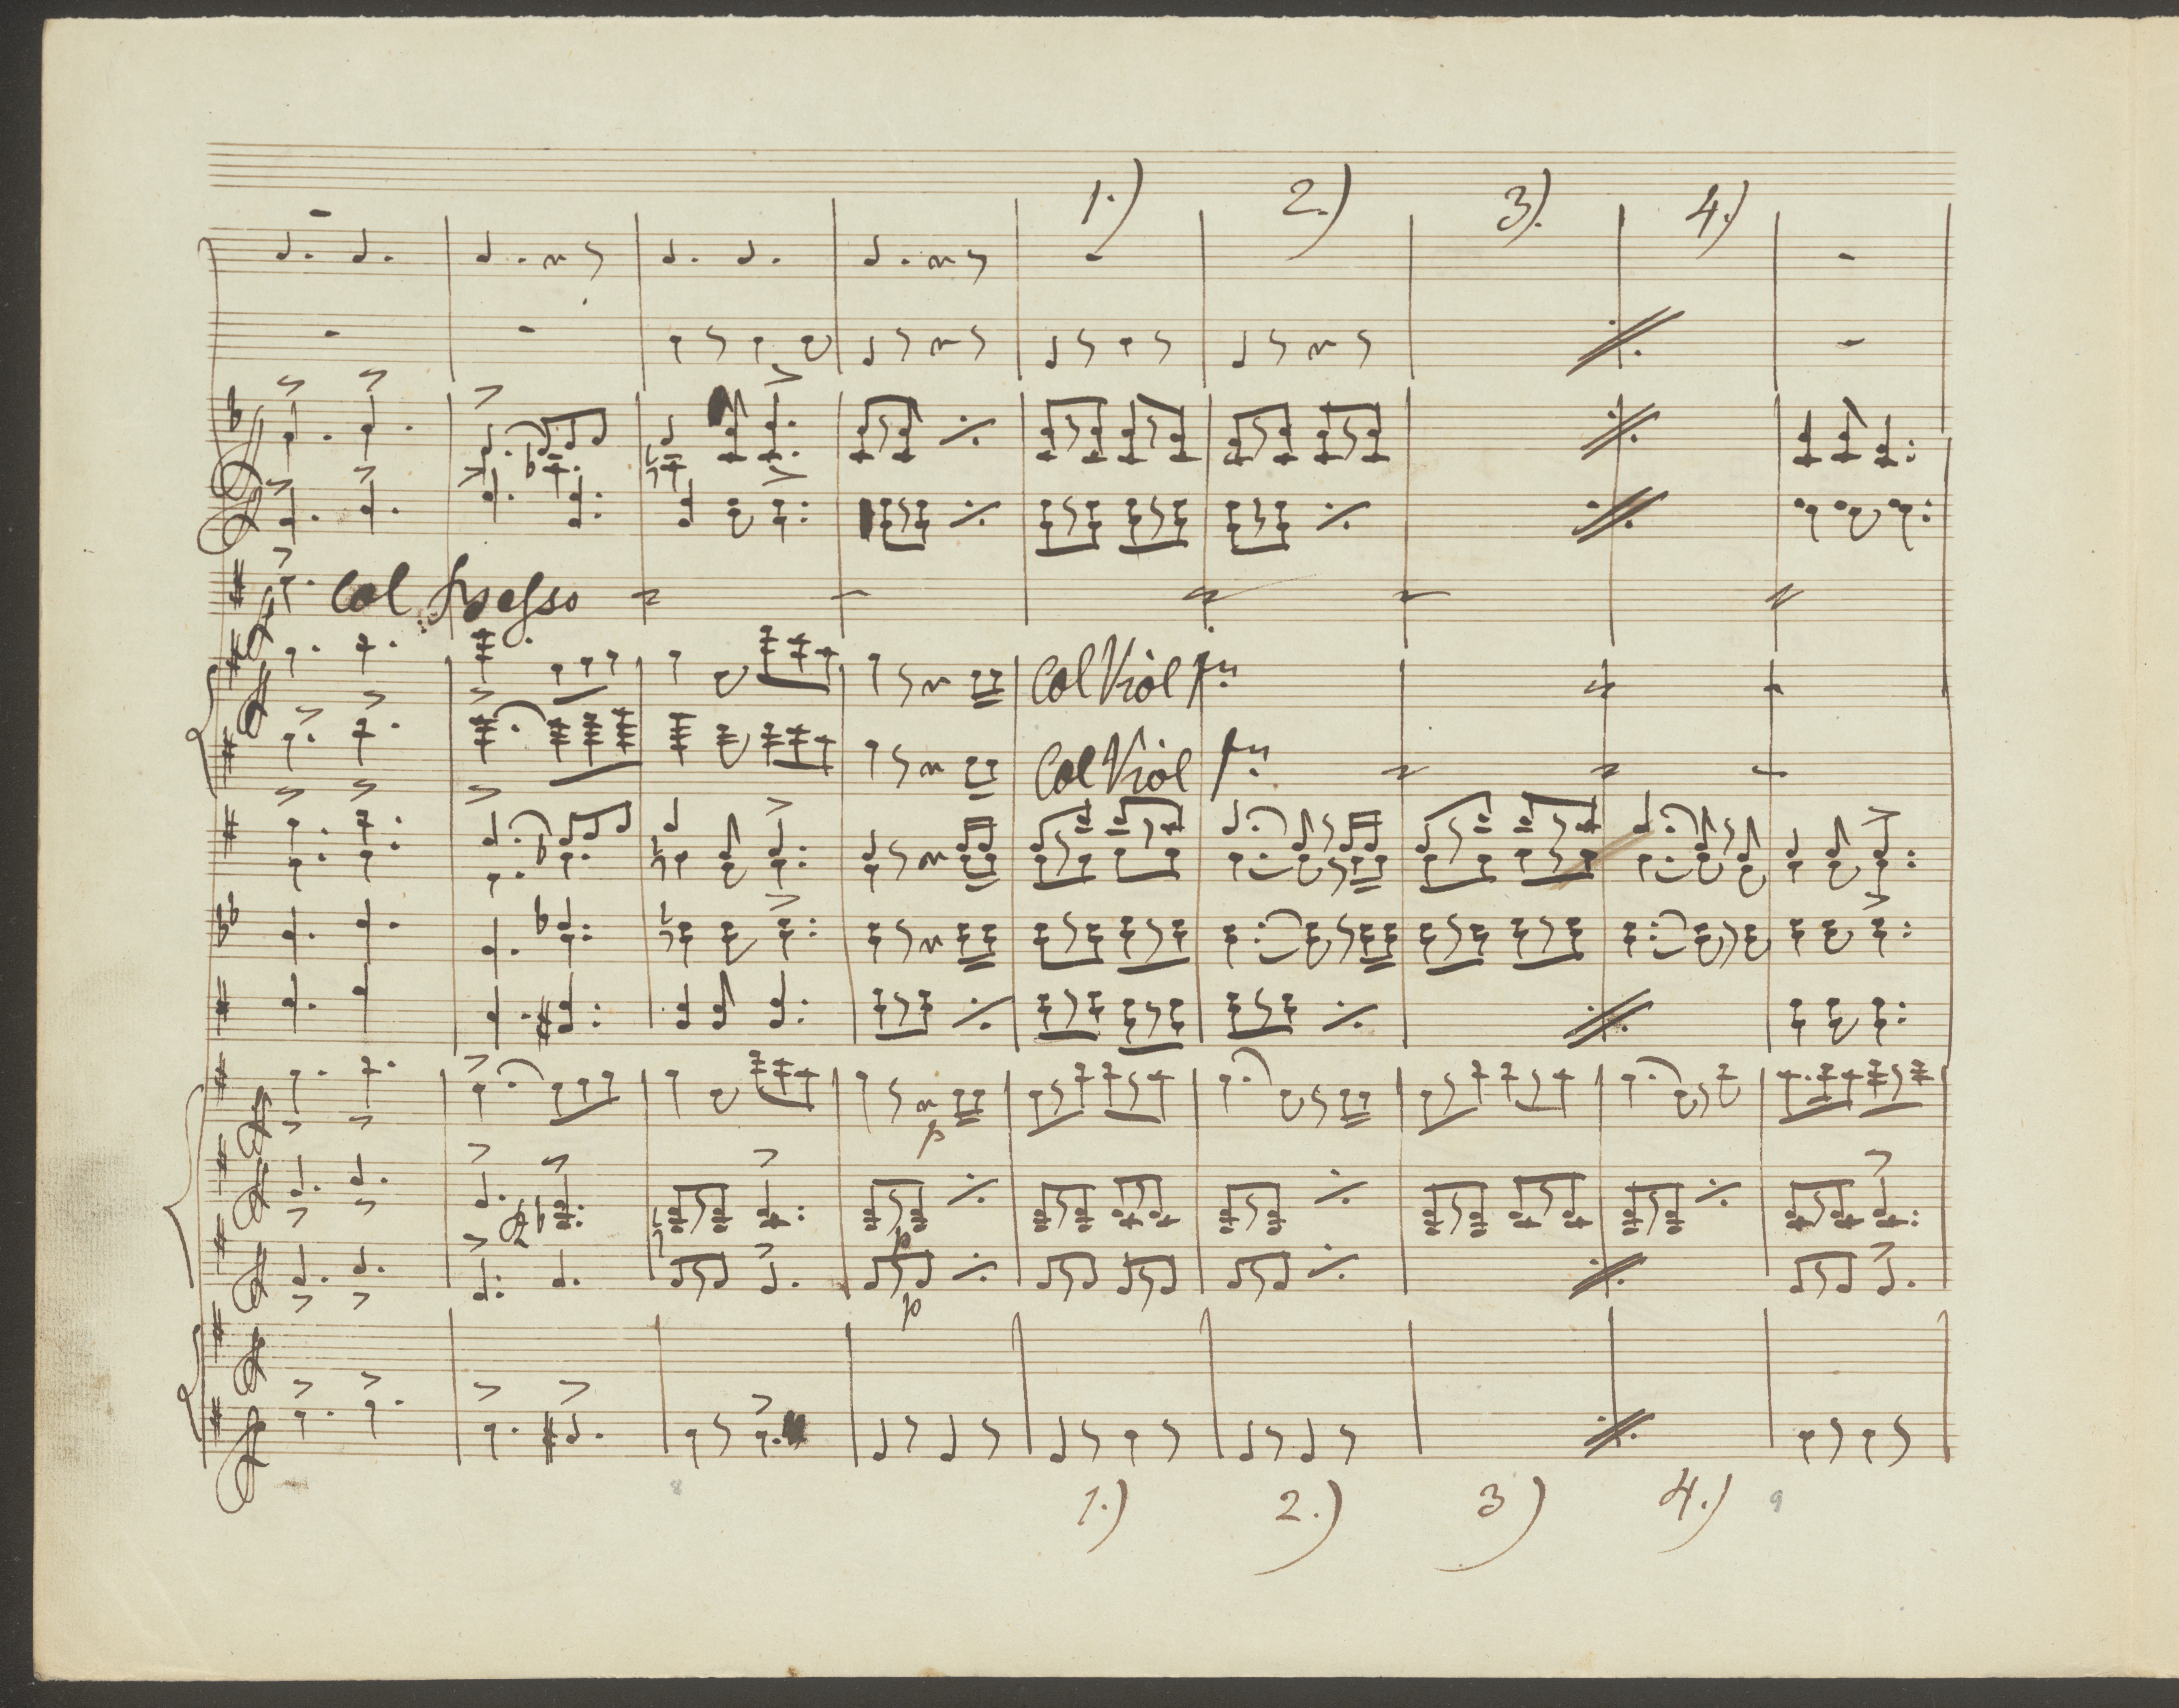 1.) 2.) 3). 4.)
Col
Col Viol pmo
Col Viol pmo
p
p
p
8 9
1.) 2.) 3) 4.)